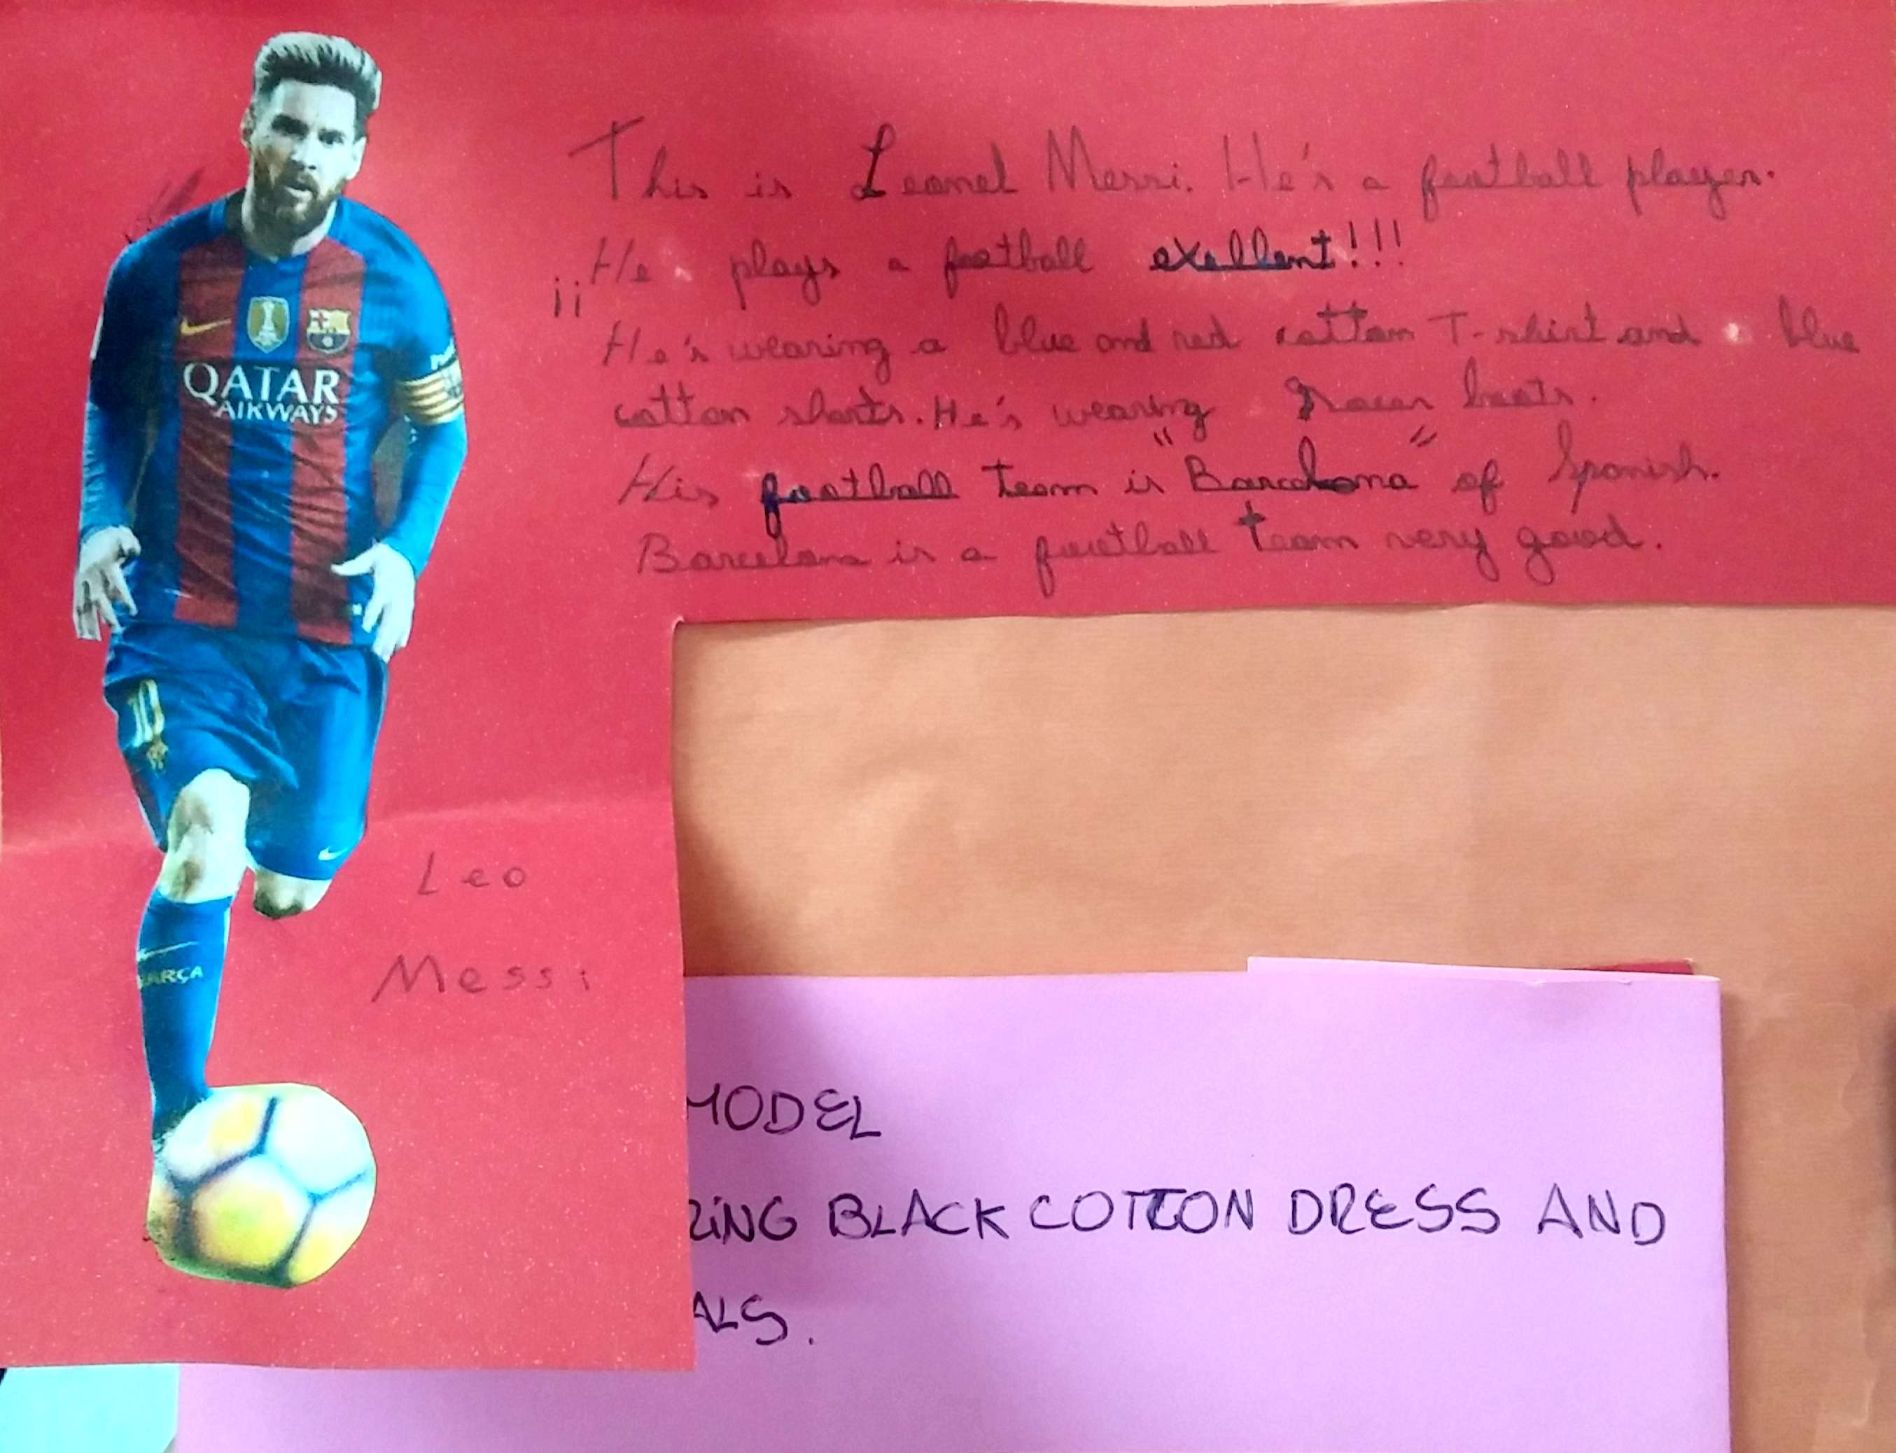 This is Leonel Messi. He's a football player.
He plays a football exellent!!!
¡¡
He's wearing a blue and red cotton T-shirt and blue
cotton shorts. He's wearing boots.
His football team is "Barcelona" of Spanish.
Barcelona is a football team very good.
QATAR
AIRWAYS
10
Leo
Messi
BARÇA
MODEL
RING BLACK COTTON DRESS AND
ALS.